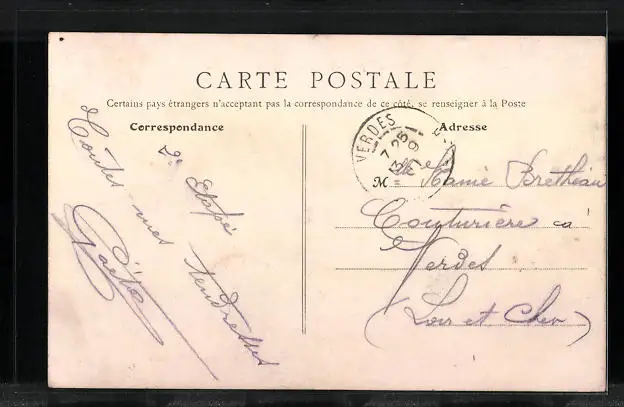 CARTE POSTALE
Certains pays étrangers n'acceptant pas la correspondance de ce côté, se renseigner à la Poste
Correspondance
Adresse
2e Etape
Toutes mes tendresses
Gaëtan
VERDES
7 25
M lle Mamie Bretheau
Couturière à
Verdes
(Loir et Cher)